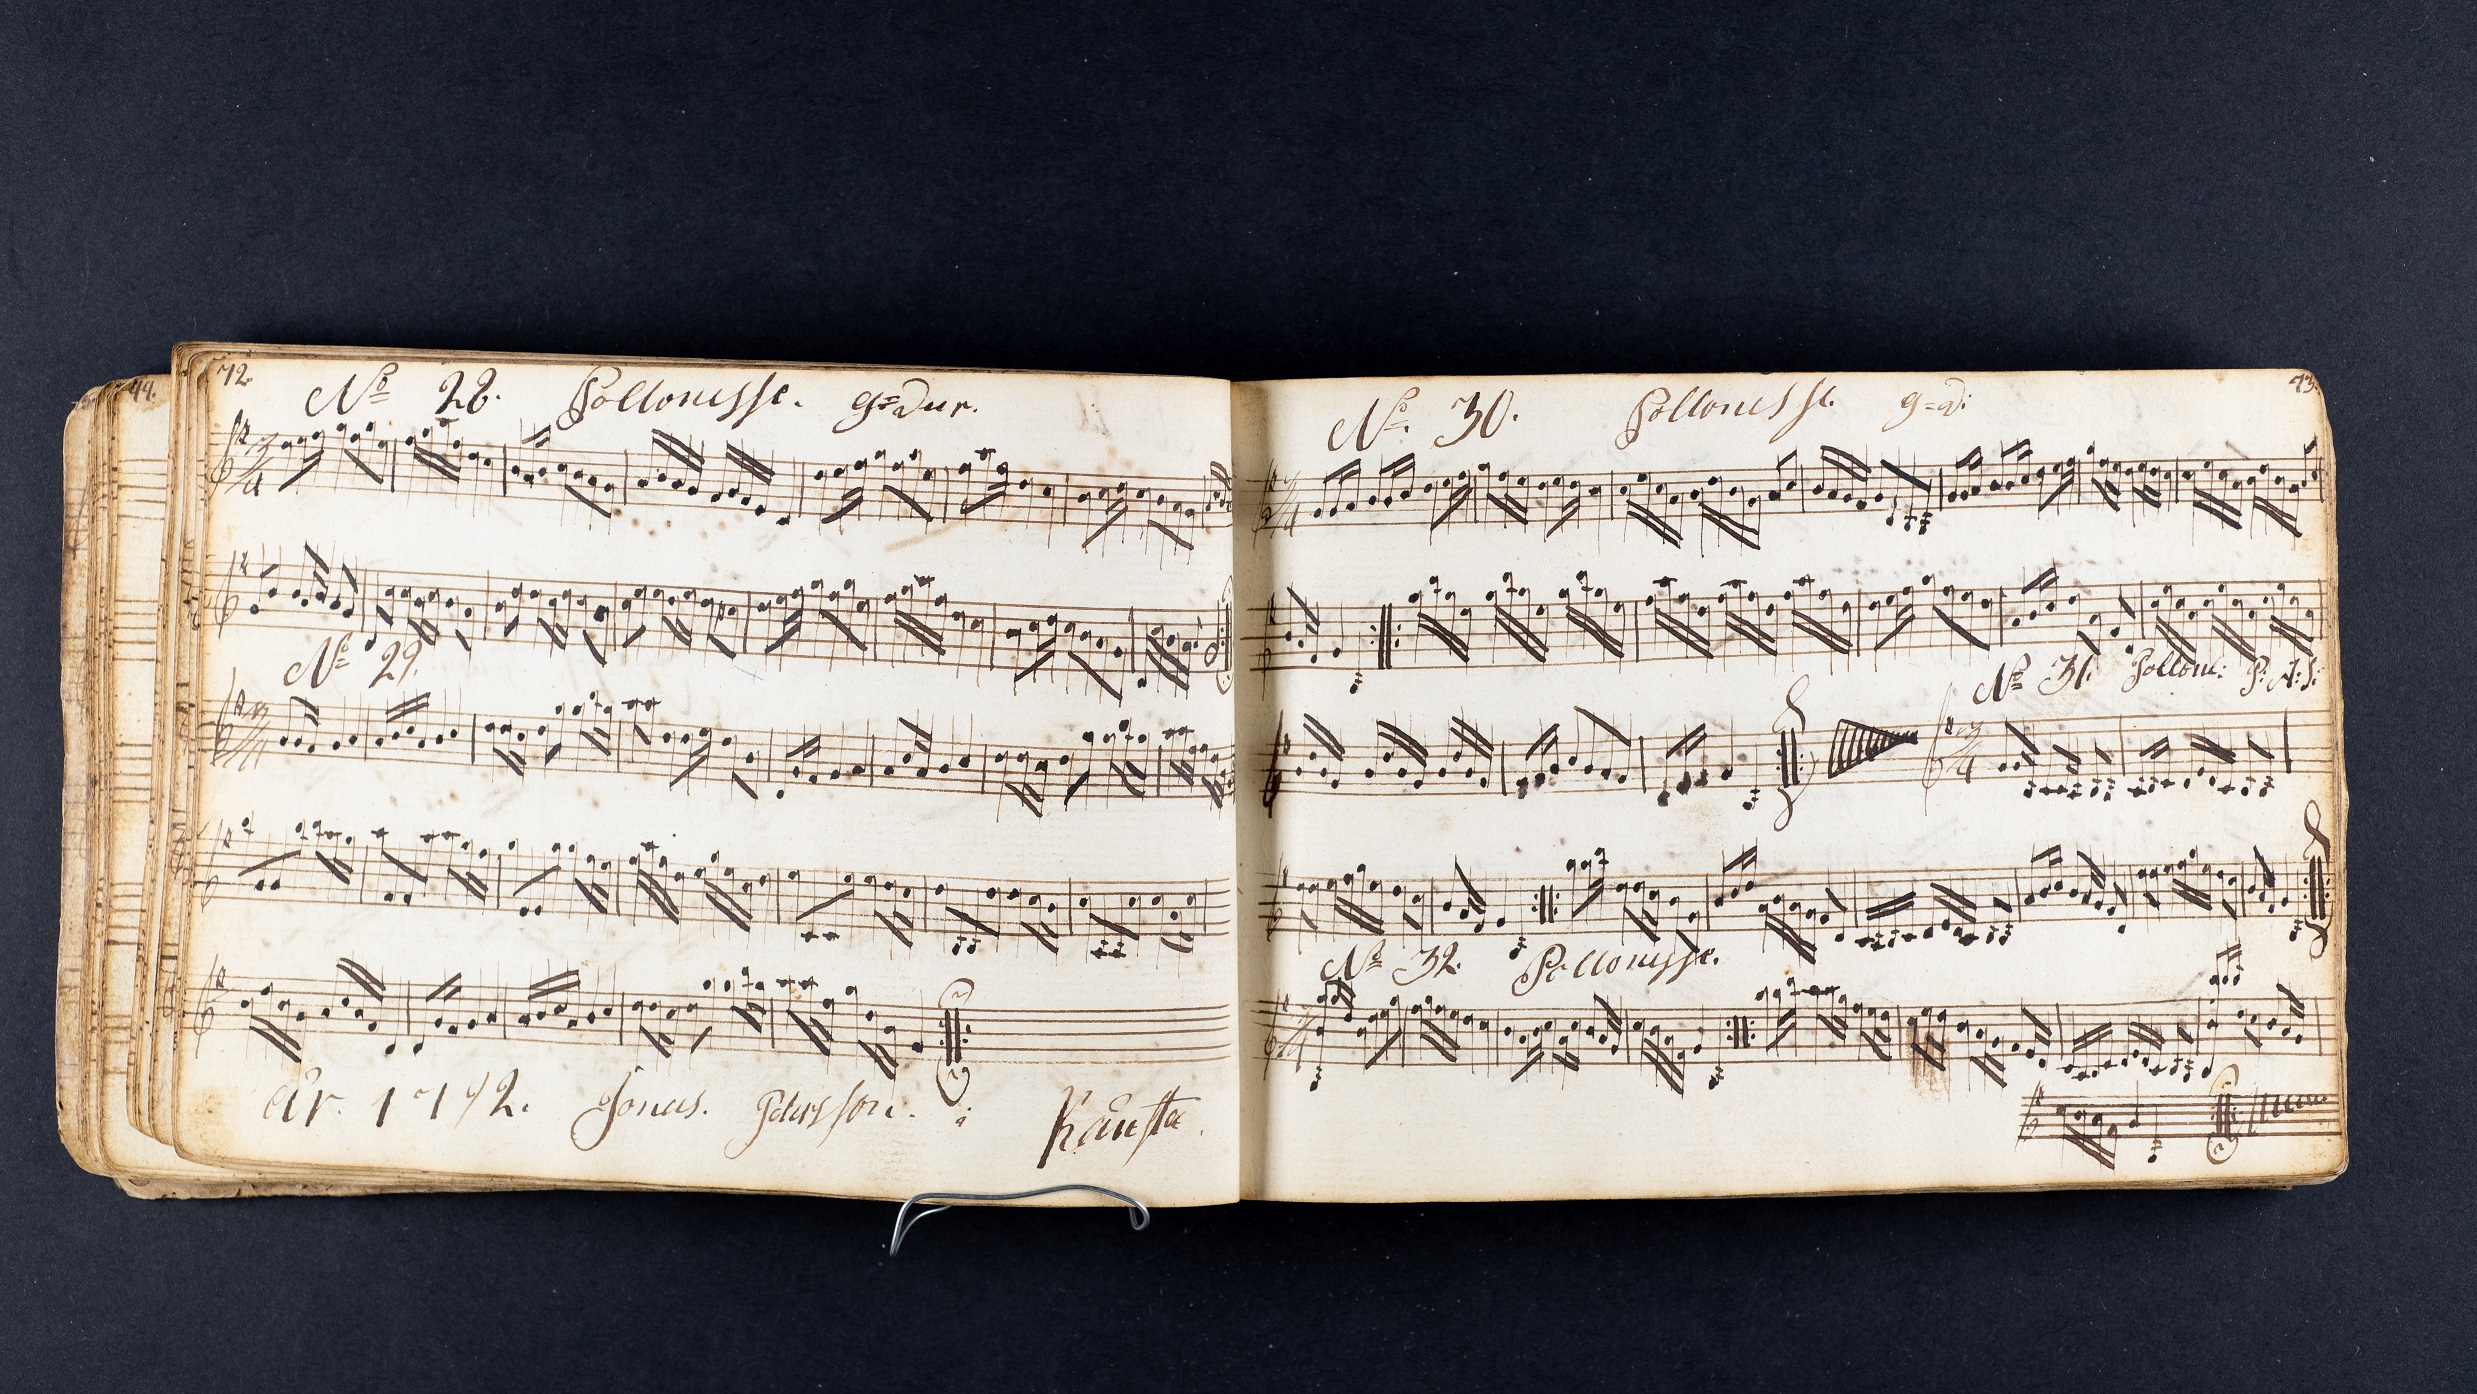 44.
72.
No 28. Pollonesse. g=dur.
No 29.
år. 1792. Jonas. Petersson. i
73.
No. 30. Pollonesse. g=d:
No 31. Pollone: P: A: S:
No 32. Pollonesse.